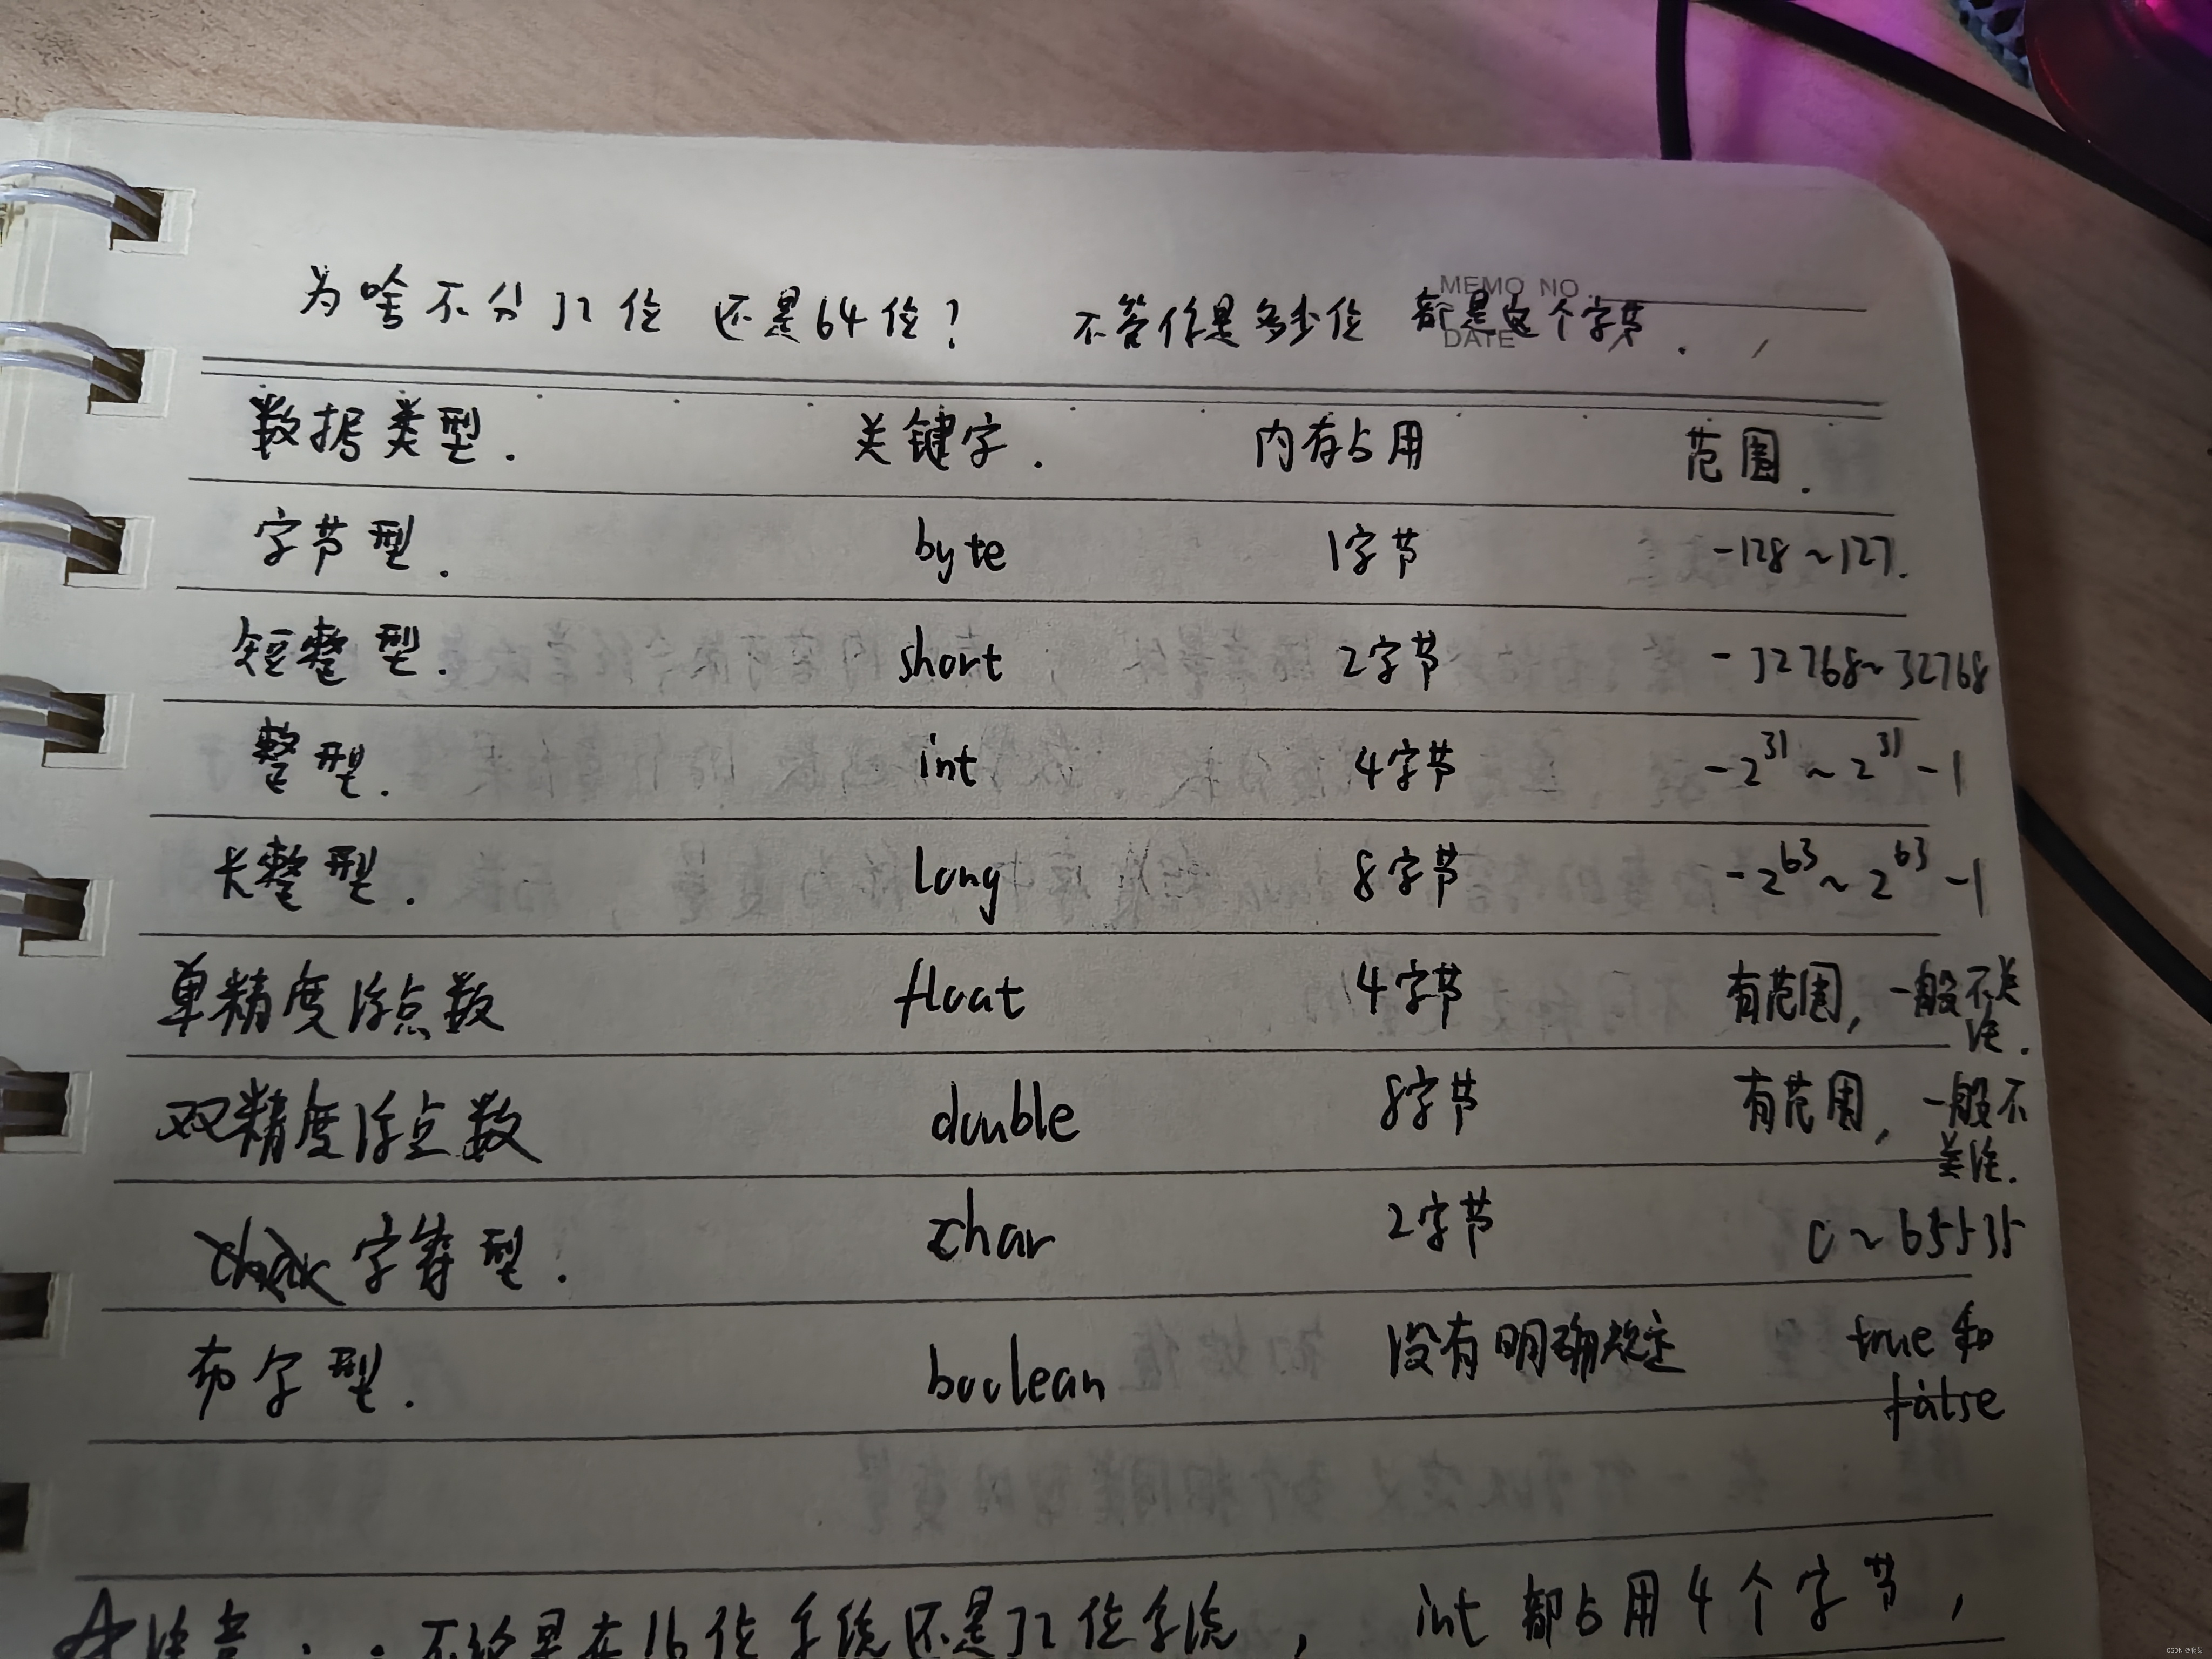 为啥不分32位 还是64位? 不管你是多少位 都是这个字节.
MEMO NO
DATE
数据类型. 关键字. 内存占用 范围.
字节型. byte 1字节 -128~127.
短整型. short 2字节 -32768~32768
整型. int 4字节 -2^31~2^31-1
长整型. long 8字节 -2^63~2^63-1
单精度浮点数 float 4字节 有范围,一般不关
注.
双精度浮点数 double 8字节 有范围,一般不
关注.
字符型. char 2字节 0~65535
布尔型. boolean 没有明确规定 true和
false
注意: 不论是在16位系统还是32位系统, int 都占用4个字节,
CSDN @爬菜